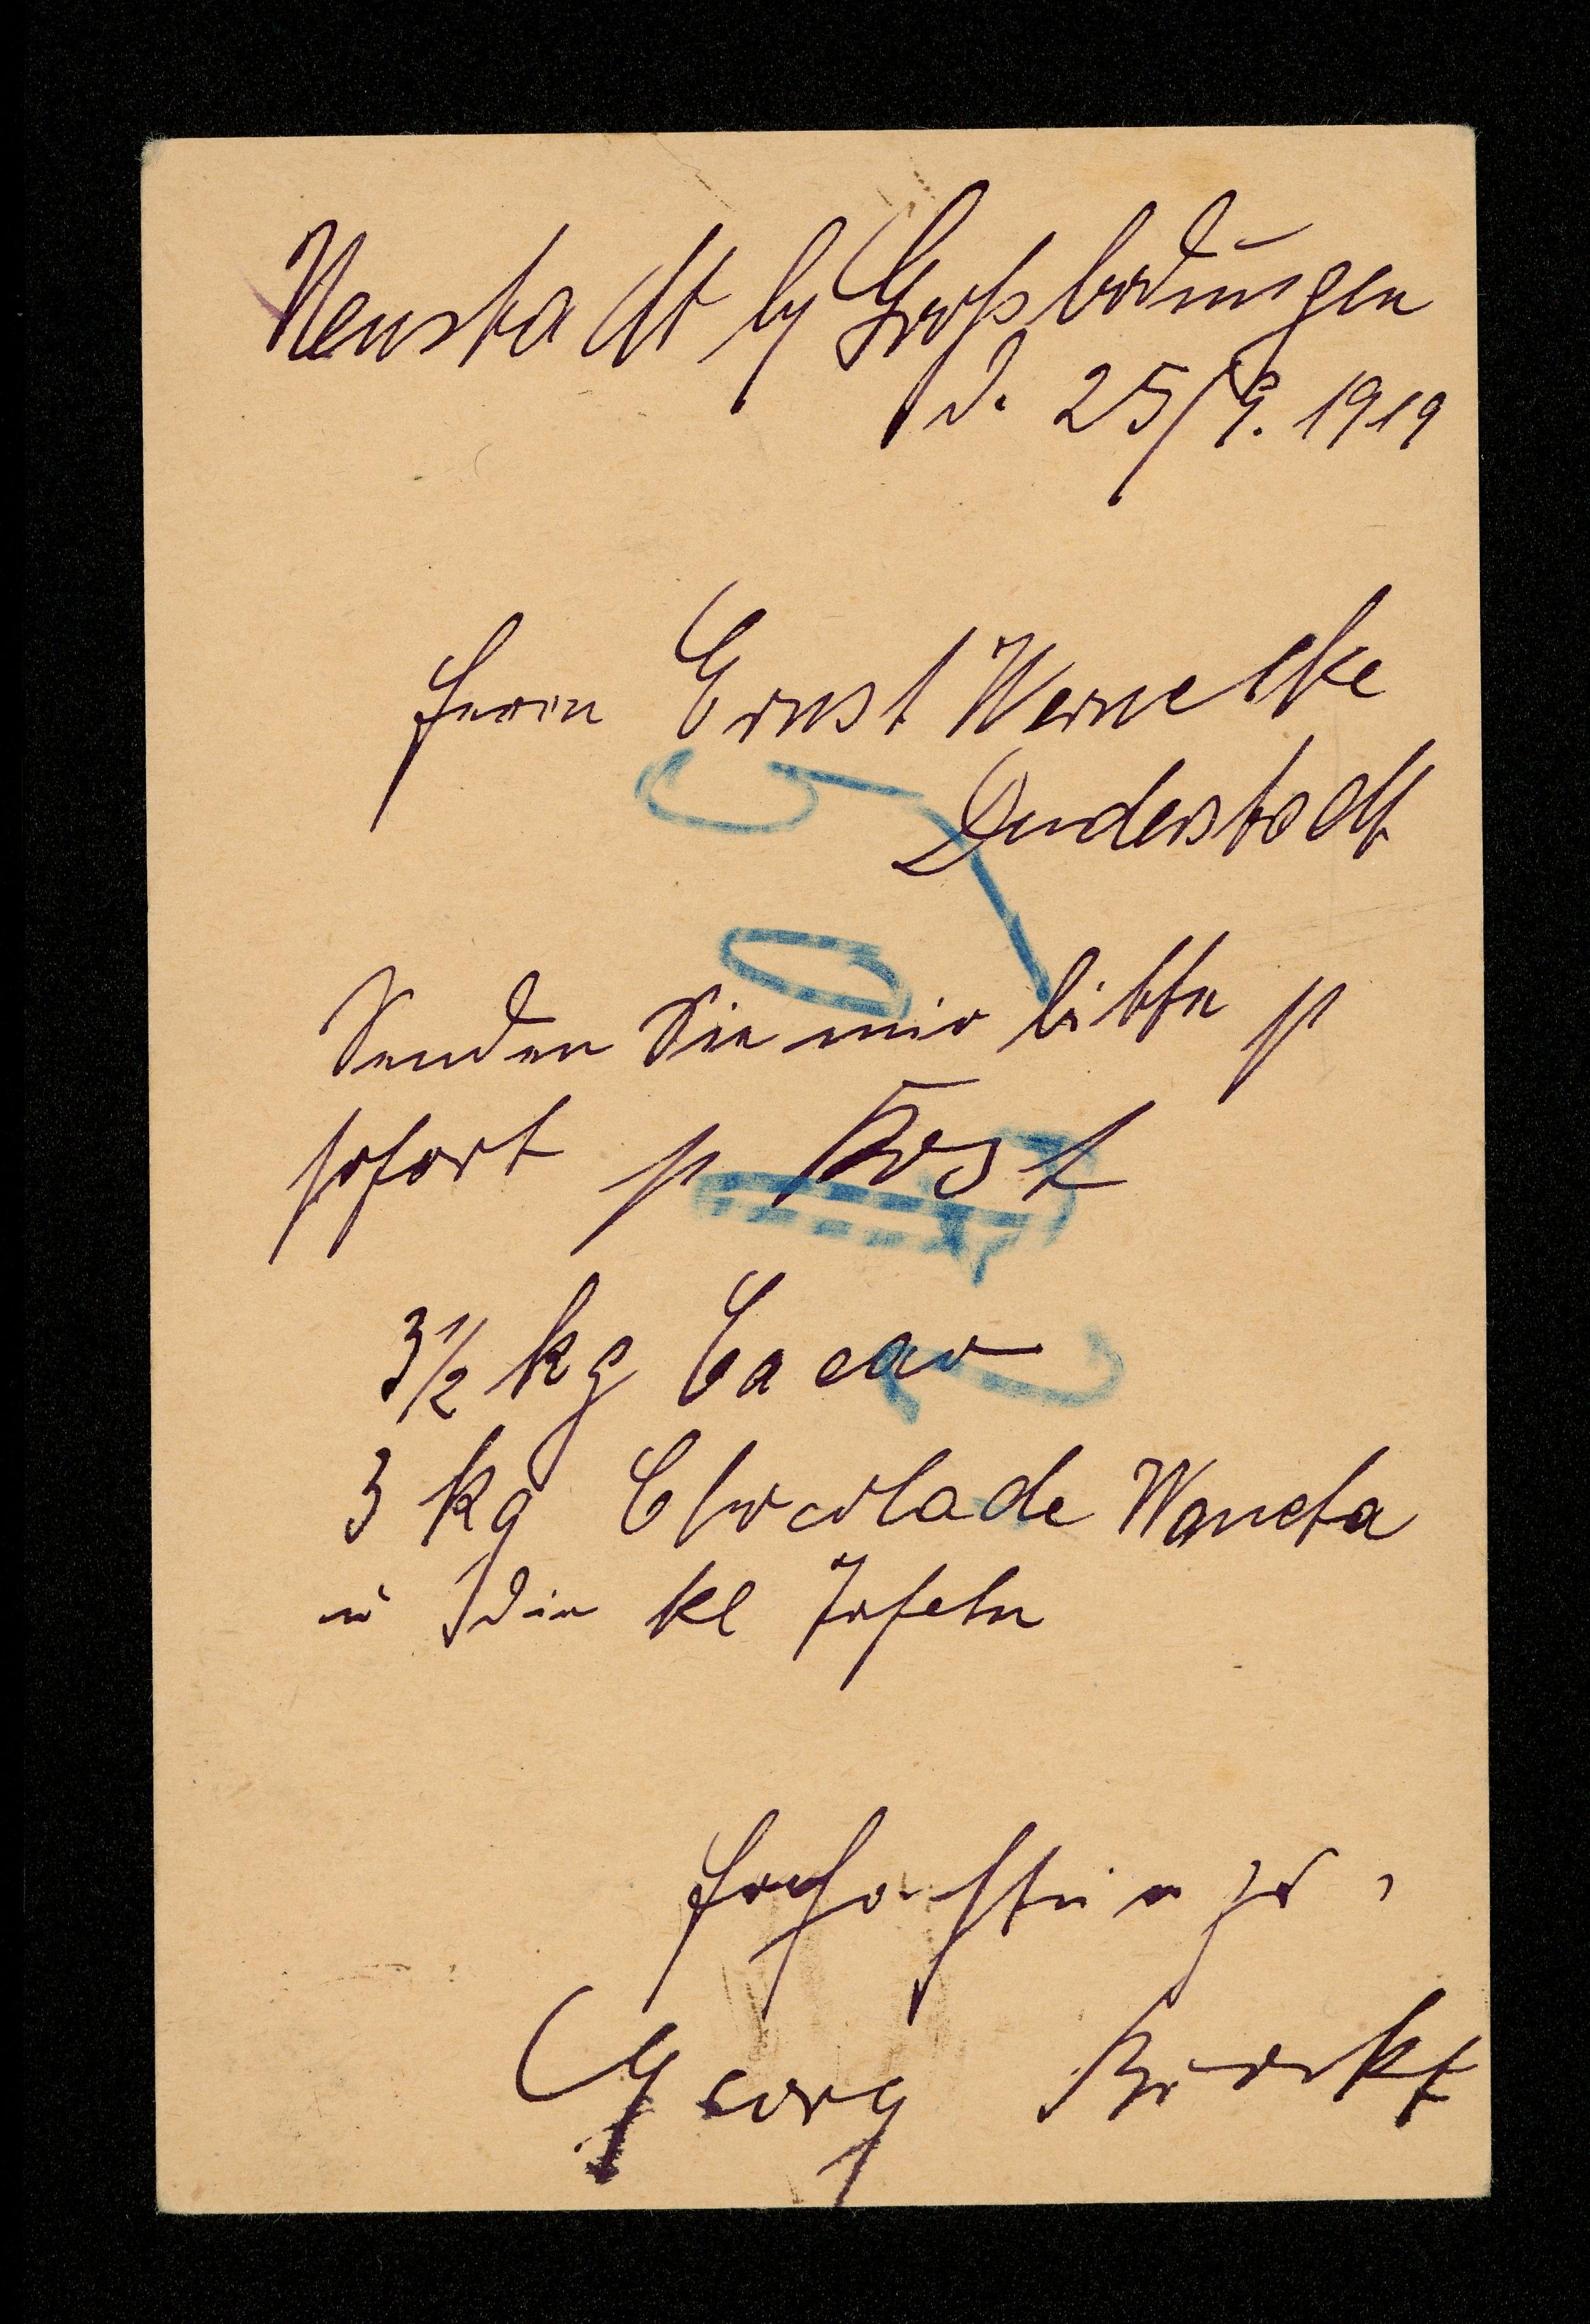 Neustadt b/ Großbodungen
d. 25/9. 1919
Herrn Ernst Wernecke
Duderstadt
Senden Sie mir bitte p
sofort p Post
3 1/2 kg Cacao
3 kg Chocolade
u die kl Tafeln
Hochachtungs
Georg